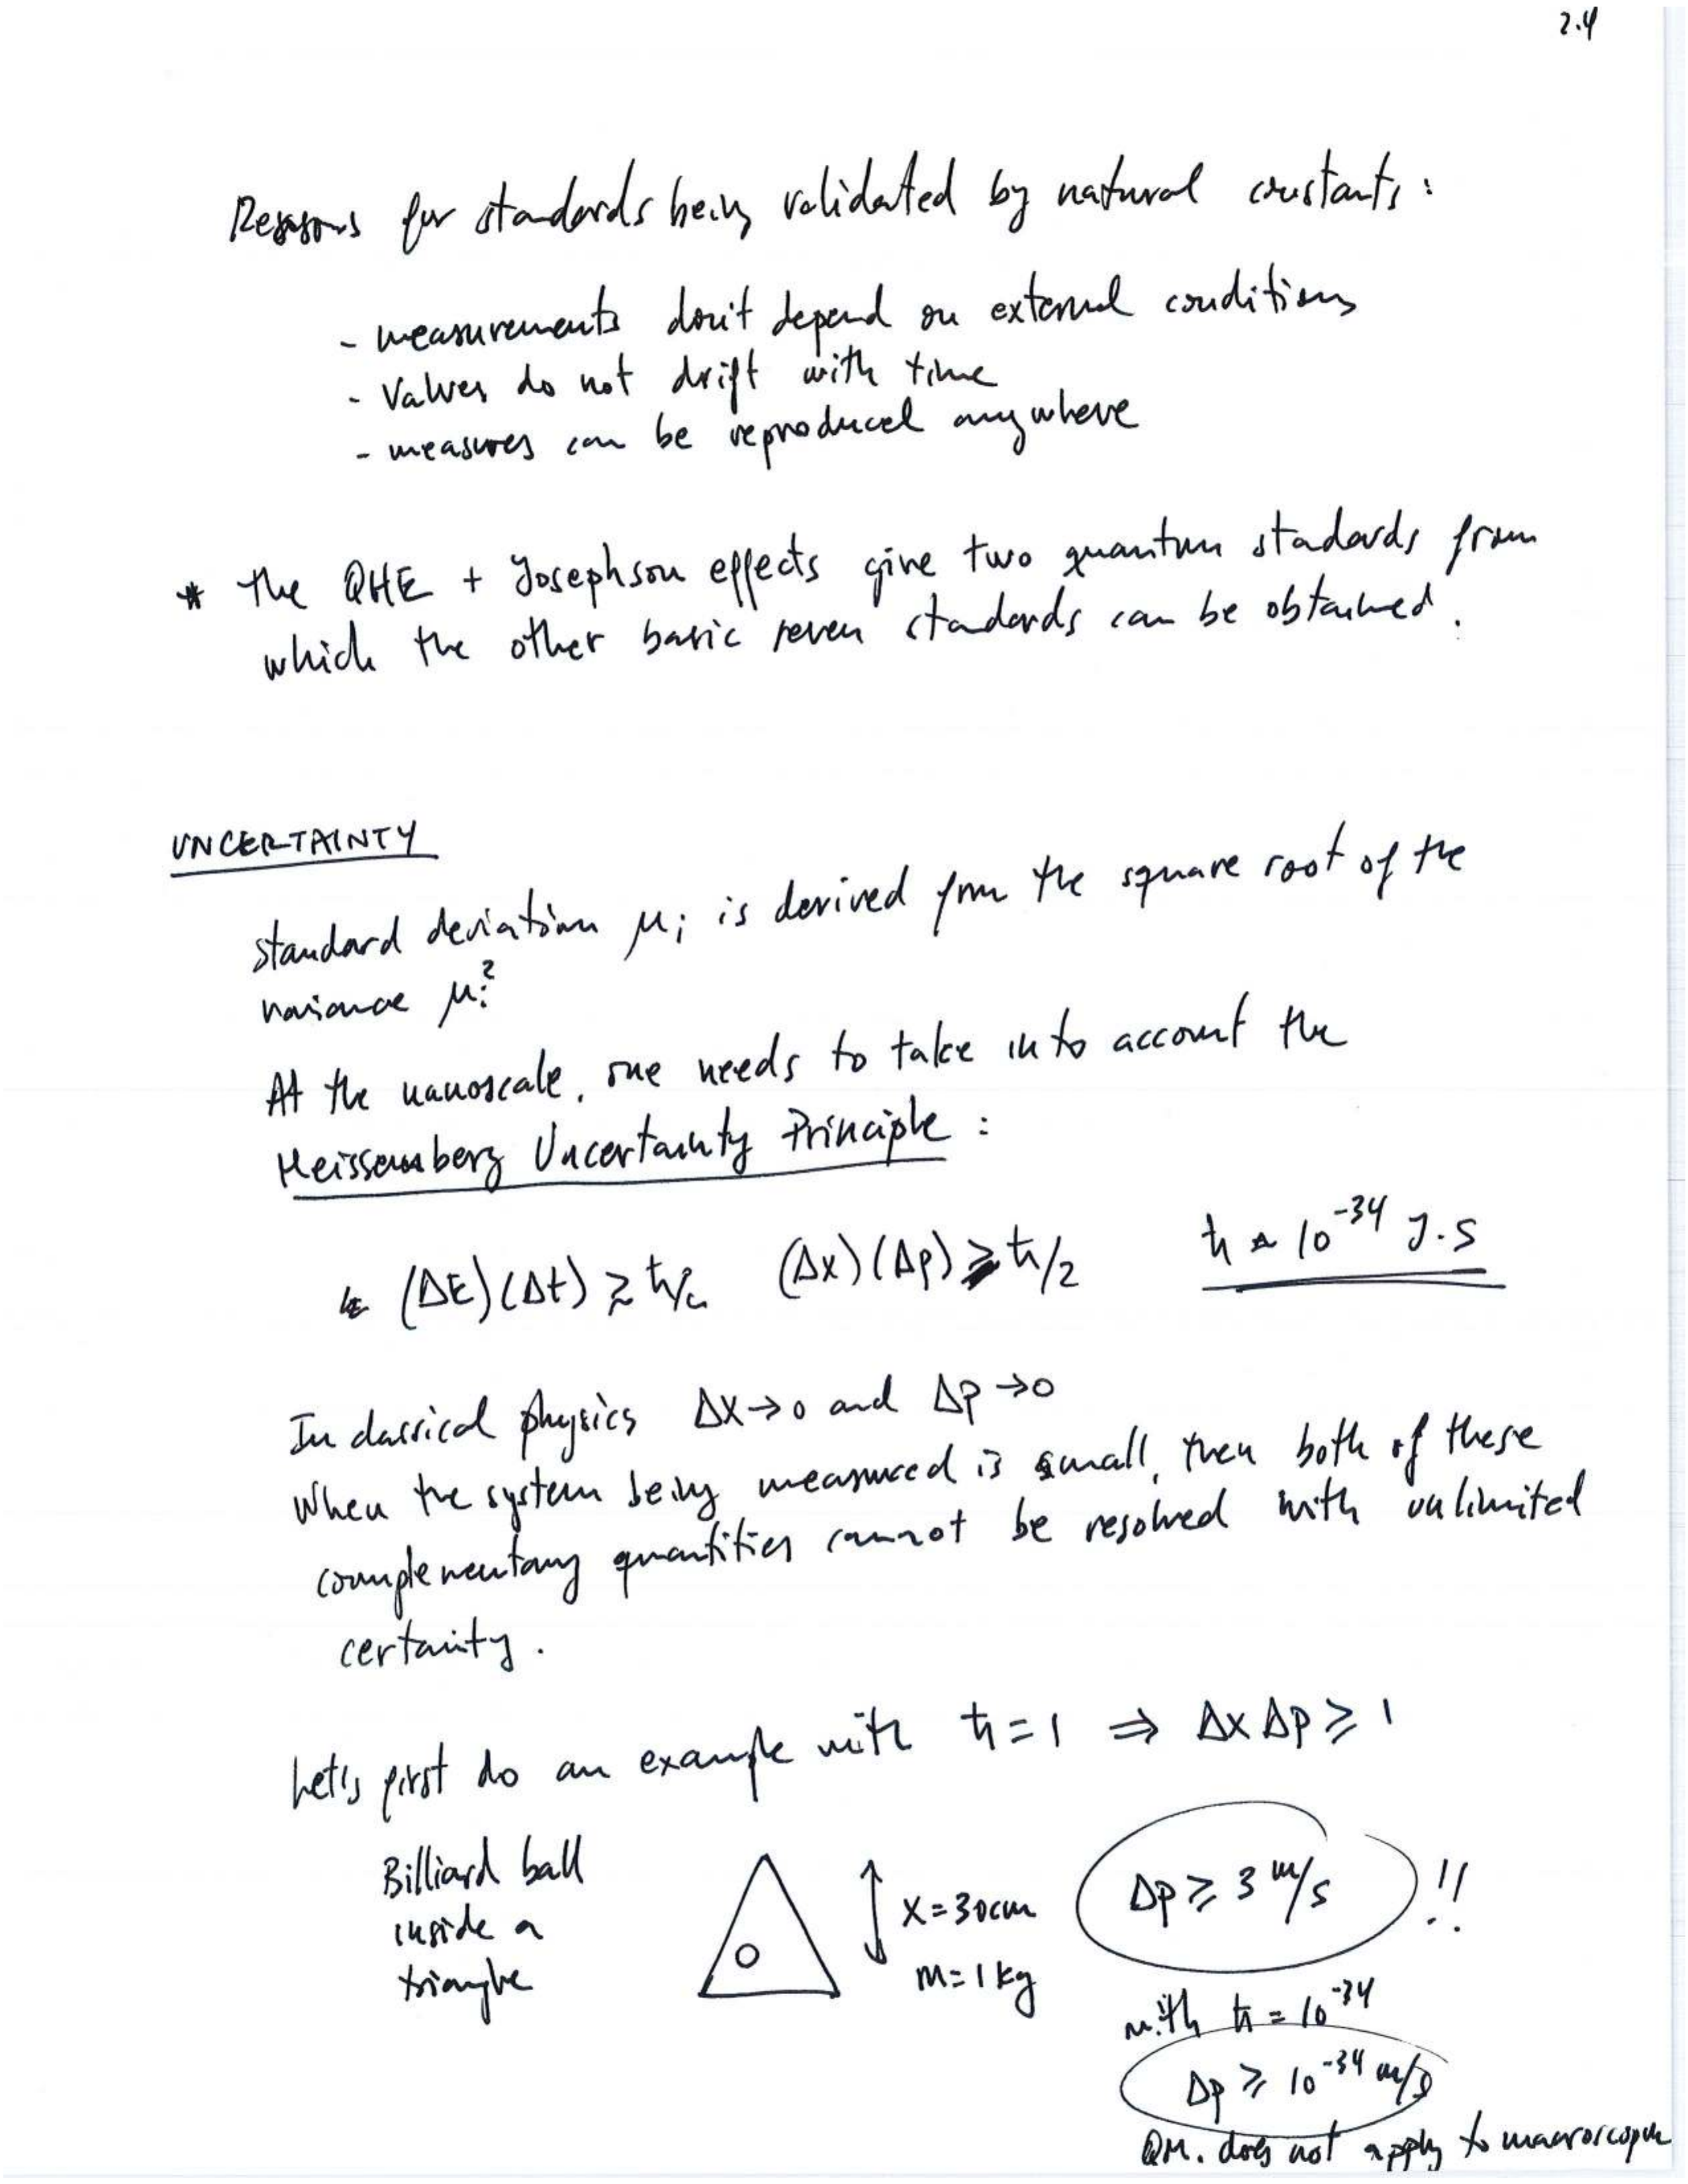 2.4
Reasons for standards being validated by natural constants:
- measurements don't depend on external conditions
- Values do not drift with time
- measures can be reproduced anywhere
* the QHE + Josephson effects give two quantum stadards from
which the other basic seven standards can be obtained.
UNCERTAINTY
standard deviation μi is derived from the square root of the
variance μi²
At the nanoscale, one needs to take into account the
Heissemberg Uncertainty Principle:
(ΔE)(Δt) ≥ ħ/2 (Δx)(Δp) ≥ ħ/2 ħ ≈ 10⁻³⁴ J.S
In classical physics Δx→0 and Δp→0
When the system being measured is small, then both of these
complementary quantities cannot be resolved with unlimited
certainty.
Let's first do an example with ħ=1 ⇒ Δx Δp ≥ 1
Billiard ball
inside a
triangle
x=30cm
m=1kg
Δp ≥ 3 m/s !!
with ħ = 10⁻³⁴
Δp ≥ 10⁻³⁴ m/s
QM. does not apply to macroscopic